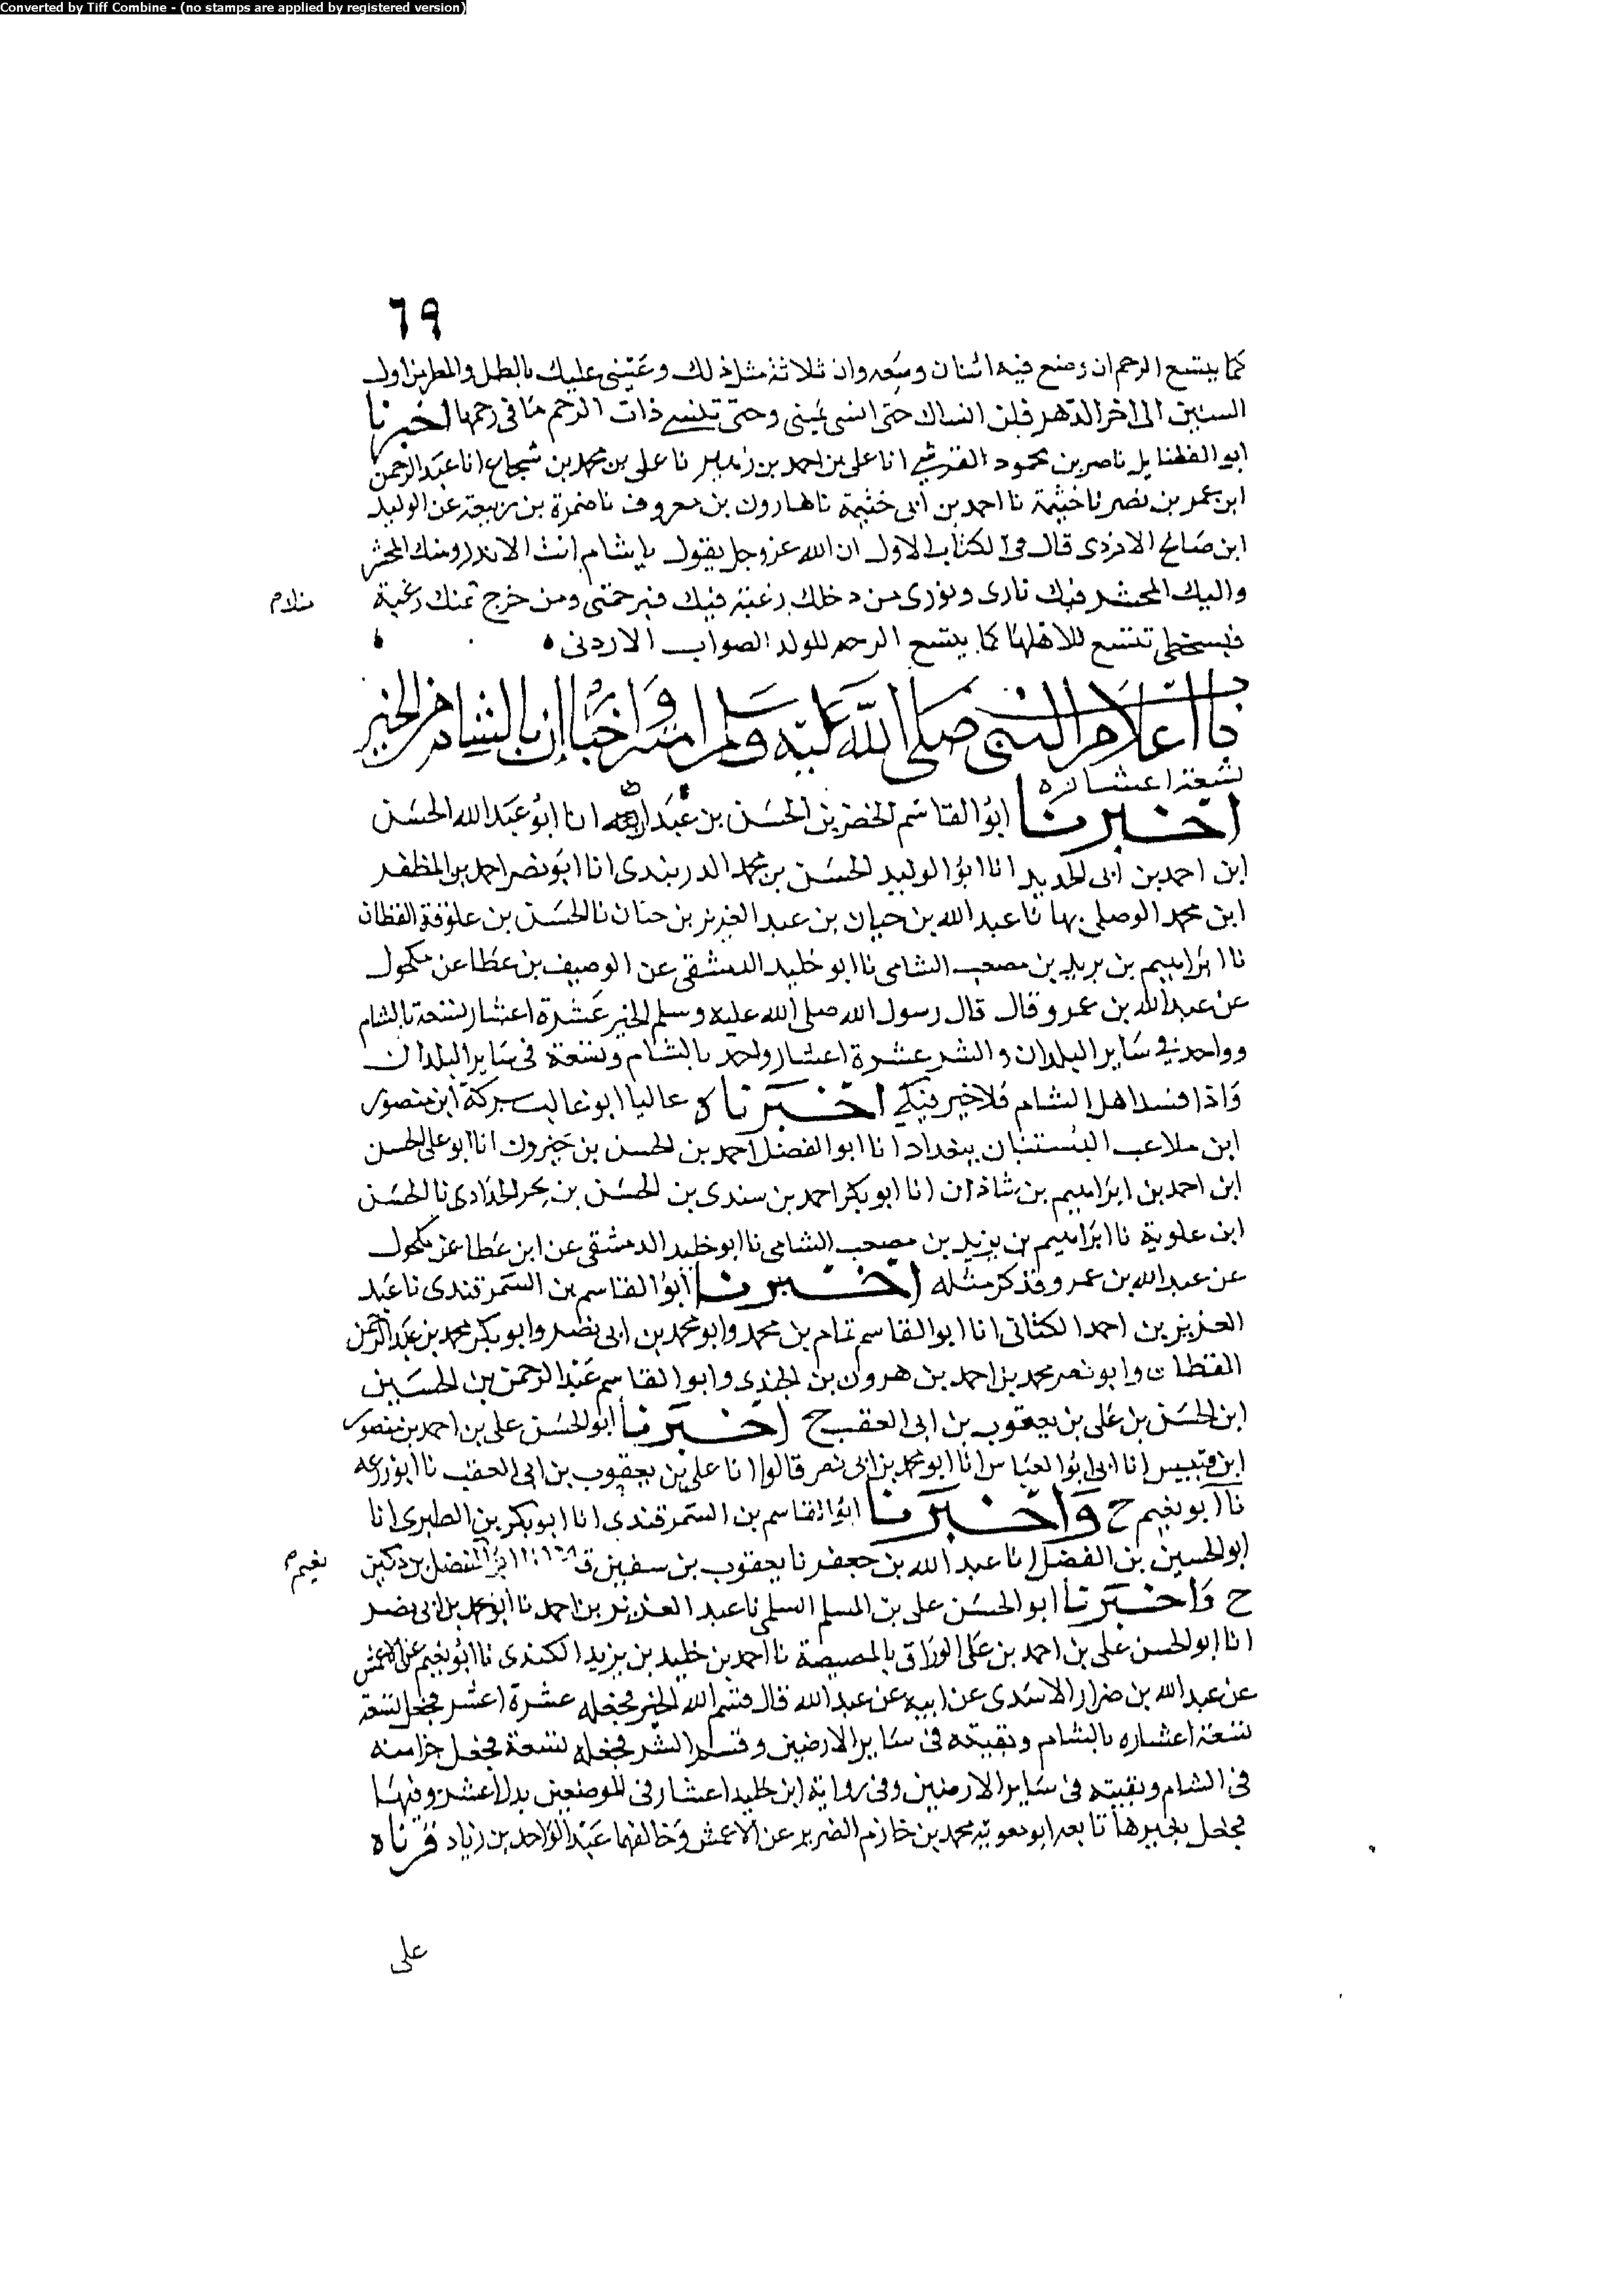 Converted by Tiff Combine - (no stamps are applied by registered version)
٦٩
كما يتسع الرحم ان وضع فيه اثنان وسعه وان ثلاثة مثل ذلك وعيني عليك بالطل والمطر من اول
السنين الى اخر الدهر فلن انساك حتى انسى يميني وحتى تنسى ذات الرحم ما في رحمها اخبرنا
ابو الفضايل ناصر بن محمود القرشي انا علي بن احمد بن زهير نا علي بن محمد بن شجاع انا عبد الرحمن
ابن عمر بن نصر نا خيثمة نا احمد بن ابي خثيمة نا هارون بن معروف نا ضمرة بن ربيعة عن الوليد
ابن صالح الازدي قال في الكتاب الاول ان الله عز وجل يقول يا شام انت الاندر ومنك المحشر
واليك المحشر فيك ناري ونوري من دخلك رغبة فيك فبرحمتي ومن خرج منك رغبة
فبسخطي تتسع لاهلها كما يتسع الرحم للولد الصواب الاردني
باب اعلام النبي صلى الله عليه وسلم امته واخباره ان بالشام من الخير
تسعة اعشاره
اخبرنا ابو القاسم الخضر بن الحسن بن عبد الله انا ابو عبد الله الحسن
ابن احمد بن ابي الحديد انا ابو الوليد الحسن بن محمد الدربندي انا ابو نصر احمد بن المظفر
ابن محمد الموصلي بها نا عبد الله بن حيان بن عبد العزيز بن حنان نا الحسن بن علوفة القطان
نا ابراهيم بن بريد بن مصعب الشامي نا ابو خليد الدمشقي عن الوصيف بن عطا عن مكحول
عن عبد الله بن عمرو قال قال رسول الله صلى الله عليه وسلم الخير عشرة اعشار تسعة بالشام
وواحد في ساير البلدان والشر عشرة اعشار واحد بالشام وتسعة في ساير البلدان
واذا فسد اهل الشام فلا خير فيكم اخبرناه عاليا ابو غالب بركة ابن منصور
ابن ملاعب البستنبان ببغداد انا ابو الفضل احمد بن الحسن بن خيرون انا ابو علي الحسن
ابن احمد بن ابراهيم بن شاذان انا ابو بكر احمد بن سندي بن الحسن بن بحر الحدادي نا الحسن
ابن علوية نا ابراهيم بن يزيد بن مصعب الشامي نا ابو خليد الدمشقي عن ابن عطا عن مكحول
عن عبد الله بن عمرو فذكر مثله اخبرنا ابو القاسم بن السمرقندي نا عبد
العزيز بن احمد الكتاني انا ابو القاسم تمام بن محمد وابو محمد بن ابي نصر وابو بكر محمد بن عبد الرحمن
القطان وابو نصر محمد بن احمد بن هرون بن الجندي وابو القاسم عبد الرحمن بن الحسين
ابن الحسن بن علي بن يعقوب بن ابي العقب ح اخبرنا ابو الحسن علي بن احمد بن منصور
ابن قبيس انا ابي ابو العباس انا ابو محمد بن ابي نصر قالوا انا علي بن يعقوب بن ابي العقب نا ابو زرعه
نا ابو نعيم ح واخبرنا ابو القاسم بن السمرقندي انا ابو بكر بن الطبري انا
ابو الحسين بن الفضل انا عبد الله بن جعفر نا يعقوب بن سفين الفضل بن دكين
نعيم
ح واخبرنا ابو الحسن علي بن المسلم السلمي نا عبد العزيز بن احمد نا ابو محمد بن ابي نصر
انا ابو الحسن علي بن احمد بن علي الوراق بالمصيصة نا احمد بن خليد بن يزيد الكندي نا ابو نعيم عن الاعمش
عن عبد الله بن ضرار الاسدي عن ابيه عن عبد الله قال قسم الله الخير فجعله عشرة اعشر فجعل تسعة
تسعة اعشاره بالشام وبقيته في ساير الارضين وقسم الشر فجعله تسعة فجعل جزا منه
في الشام وبقيته في ساير الارضين وفي رواية ابن خليد اعشار في الموضعين بدل اعشر وفيها
فجعل بغيرها تابعه ابو معوية محمد بن خازم الضرير عن الاعمش وخالفهما عبد الواحد بن زياد
علي